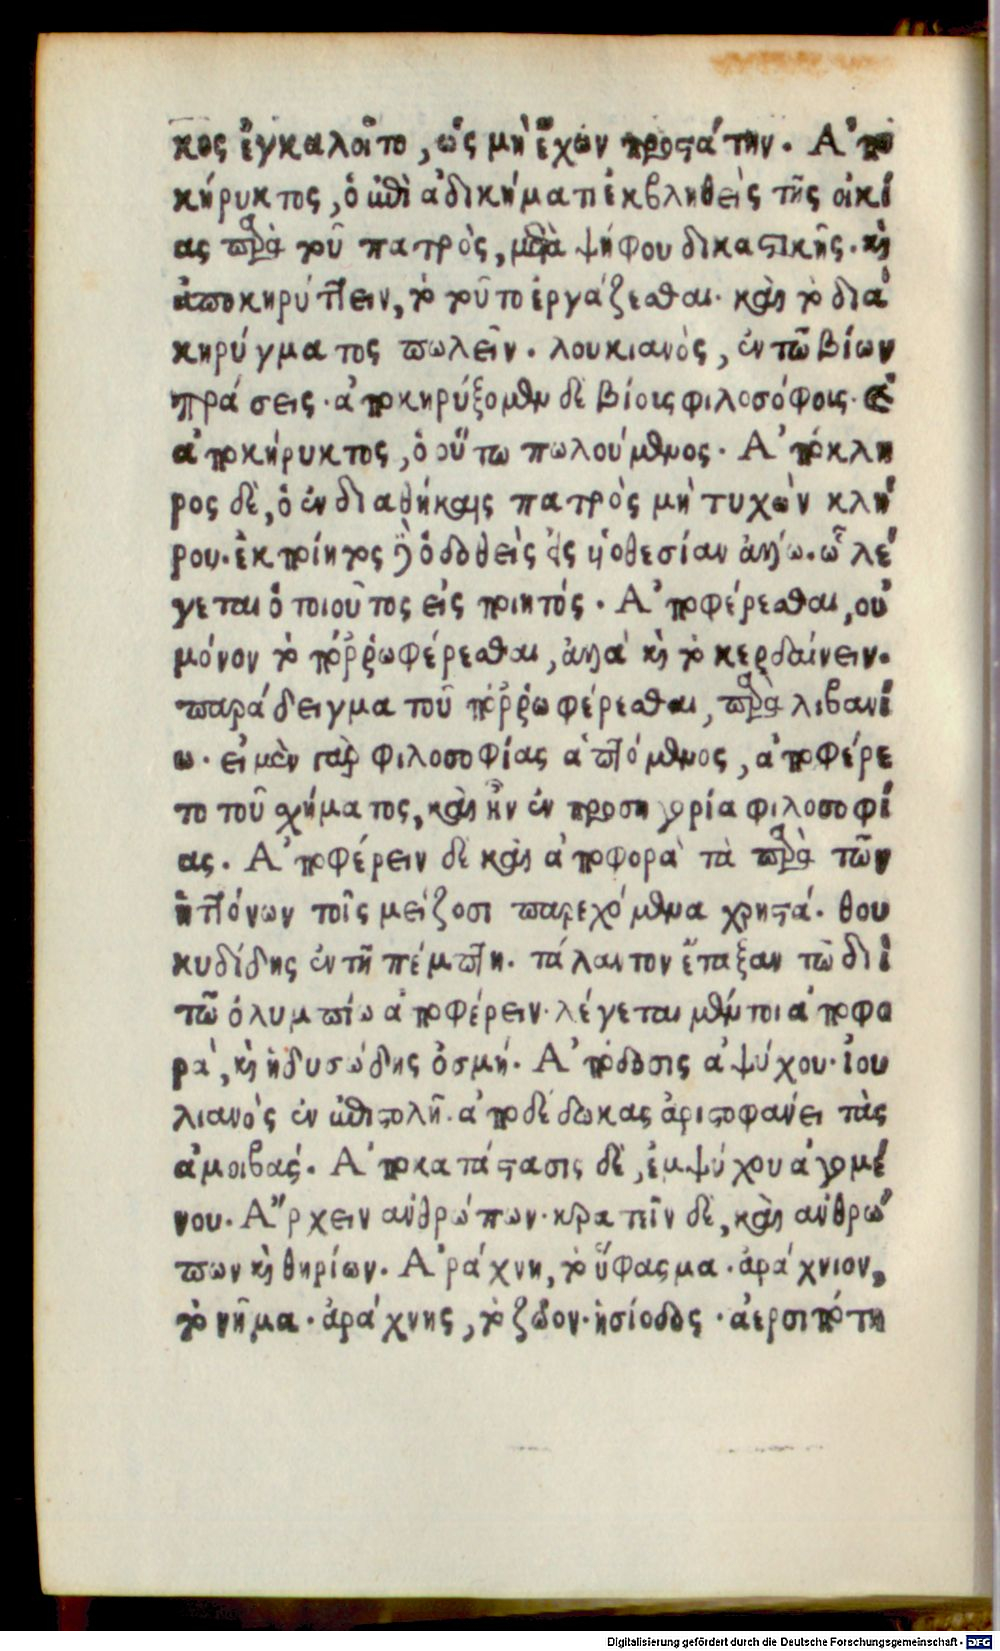 κος ἐγκαλοῖτο, ὡς μὴ ἔχων προστάτην. Ἀπο
κήρυκτος, ὁ ἐπὶ ἀδικήματι ἐκβληθεὶς τῆς οἰκί
ας παρὰ τοῦ πατρὸς, μετὰ ψήφου δικαστικῆς. καὶ
ἀποκηρύττειν, τὸ τοῦτο ἐργάζεσθαι. καὶ τὸ διὰ
κηρύγματος πωλεῖν. λουκιανὸς, ἐν τῶ βίων
πράσεις. ἀποκηρύξομεν δὲ βίοις φιλοσόφοις. καὶ
ἀποκήρυκτος, ὁ οὕτω πωλούμενος. Ἀπόκλη
ρος δὲ, ὁ ἐν διαθήκαις πατρὸς μὴ τυχὼν κλή
ρου. ἐκποίητος δὲ ὁ δοθεὶς εἰς υἱοθεσίαν ἄλλω. ὧ λέ
γεται ὁ τοιοῦτος εἰς ποιητός. Ἀποφέρεσθαι, οὐ
μόνον τὸ πόρρω φέρεσθαι, ἀλλὰ καὶ τὸ κερδαίνειν.
παράδειγμα τοῦ πόρρω φέρεσθαι, παρὰ λιβανί
ω. εἰ μὲν γὰρ φιλοσοφίας ἁπτόμενος, ἀποφέρε
το τοῦ σχήματος, καὶ ἦν ἐν προσηγορία φιλοσοφί
ας. Ἀποφέρειν δὲ καὶ ἀποφορὰ τὰ παρὰ τῶν
ἡττόνων τοῖς μείζοσι παρεχόμενα χρηστά. θου
κυδίδης ἐν τῆ πέμπτη. τάλαντον ἔταξαν τῶ διῒ
τῶ ὀλυμπίω ἀποφέρειν. λέγεται μέντοι ἀποφο
ρὰ, καὶ ἡ δυσώδης ὀσμή. Ἀπόδοσις ἀψύχου. ἰου
λιανὸς ἐν ἐπιστολῆ. ἀποδέδωκας ἀριστοφάνει τὰς
ἀμοιβάς. Ἀποκατάστασις δὲ, ἐμψύχου ἀγομέ
νου. Ἄρχειν ἀνθρώπων. κρατεῖν δὲ, καὶ ἀνθρώ
πων καὶ θηρίων. Ἀράχνη, τὸ ὕφασμα. ἀράχνιον,
τὸ νῆμα. ἀράχνης, τὸ ζῶον. ἡσίοδος. ἀερσιπότη
Digitalisierung gefördert durch die Deutsche Forschungsgemeinschaft - DFG